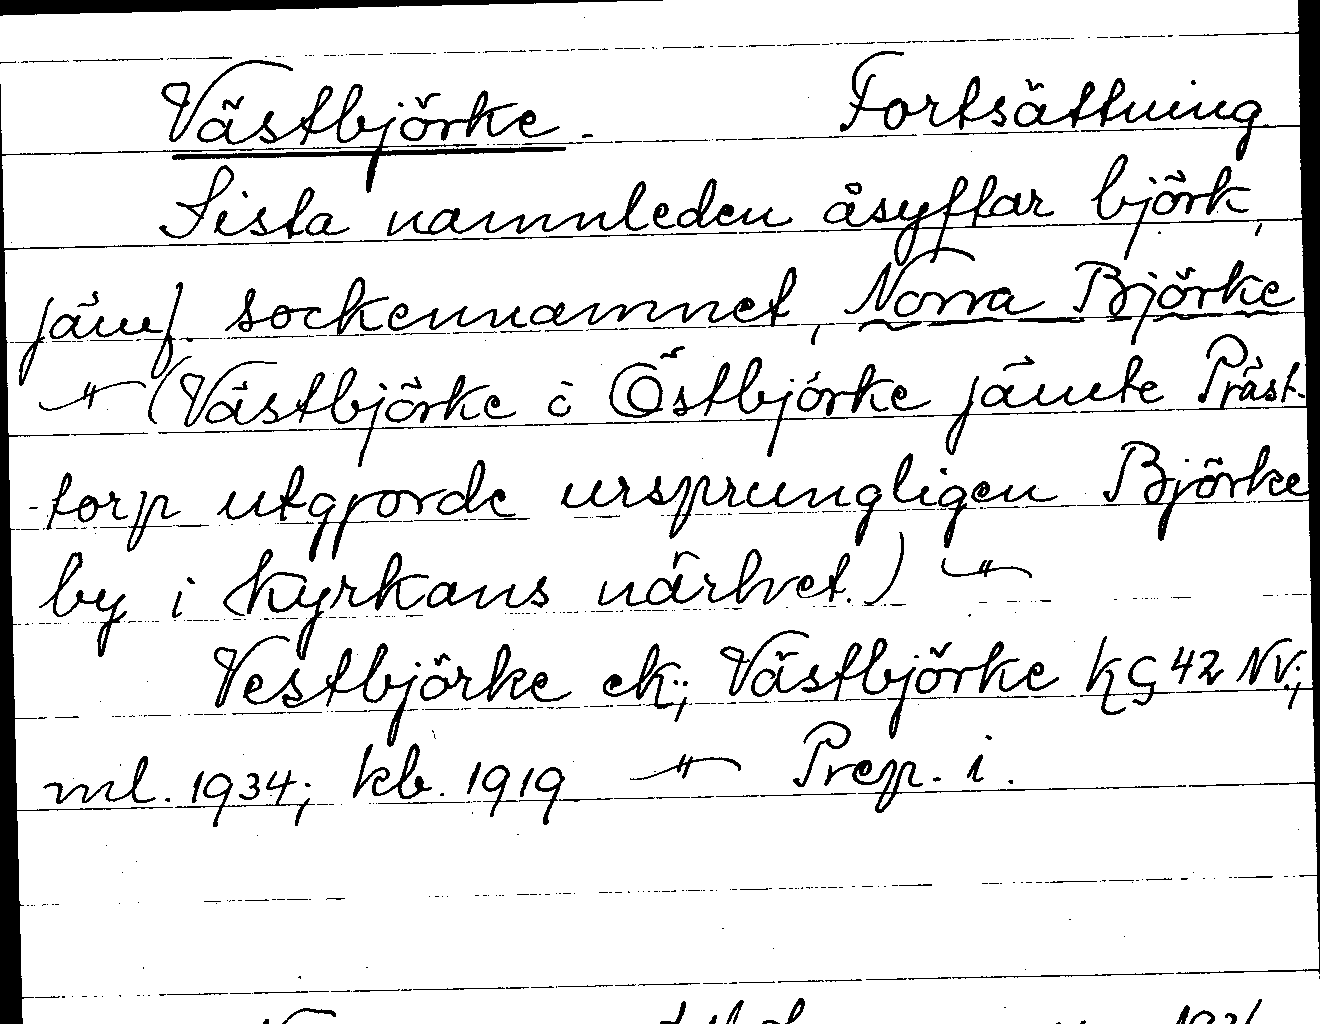 Västbjörke. Fortsättning
Sista namnleden åsyftar björk,
jämf. sockennamnet, Norra Björke
–"– (Västbjörke o Östbjörke jämte Präst-
-torp utgjorde ursprungligen Björke
by i kyrkans närhet.) –"–
Vestbjörke ek.; Västbjörke kG 42 NV.;
ml. 1934; kb. 1919 –"– Prep. i.